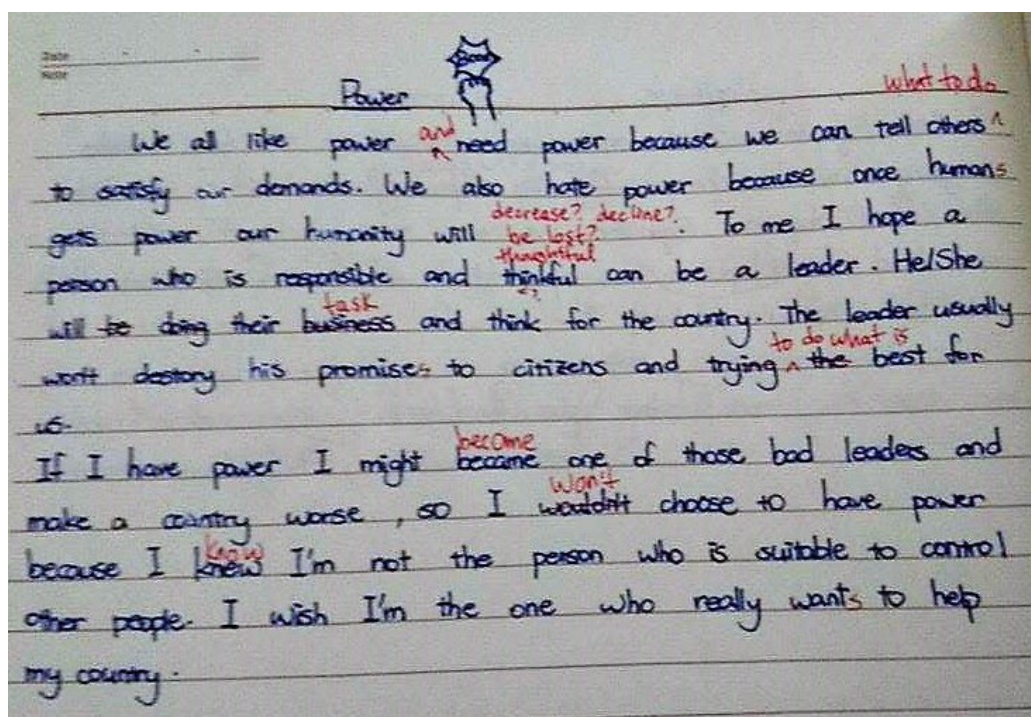 Date
Note
Power
what to do
We all like power and need power because we can tell others ^
to satisfy our demands. We also hate power because once humans
decrease? decline?
gets power our humanity will be lost? . To me I hope a
thoughtful
person who is responsible and thinkful can be a leader. He/She
task
will be doing their business and think for the country. The leader usually
to do what is
won't destory his promises to citizens and trying ^ the best for
us.
become
If I have power I might became one of those bad leaders and
won't
make a country worse, so I wouldn't choose to have power
know
because I knew I'm not the person who is suitable to control
other people. I wish I'm the one who really wants to help
my country.